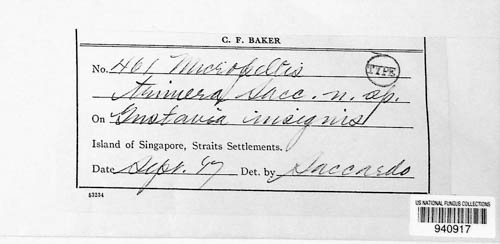 C. F. BAKER
No. 461 Micropeltis
TYPE
Sacc. n. sp.
On Gustavia insignis
Island of Singapore, Straits Settlements.
Date Sept. 17 Det. by Saccardo
53234
US NATIONAL FUNGUS COLLECTIONS
940917